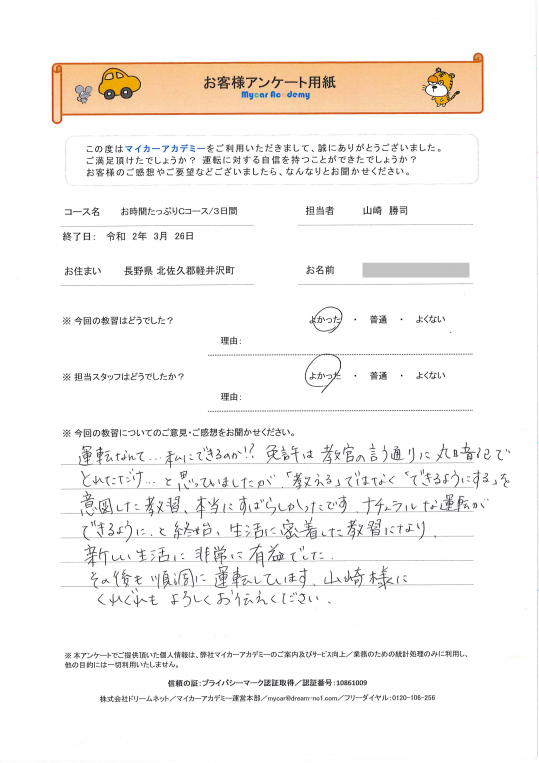 お客様アンケート用紙
Mycar Academy
この度はマイカーアカデミーをご利用いただきまして、誠にありがとうございました。
ご満足頂けたでしょうか？ 運転に対する自信を持つことができたでしょうか？
お客様のご感想やご要望などございましたら、なんなりとお聞かせください。
コース名 お時間たっぷりCコース/3日間 担当者 山崎 勝司
終了日： 令和 2年 3月 26日
お住まい 長野県 北佐久郡軽井沢町 お名前
※ 今回の教習はどうでした？ よかった ・ 普通 ・ よくない
理由：
※ 担当スタッフはどうでしたか？ よかった ・ 普通 ・ よくない
理由：
※ 今回の教習についてのご意見・ご感想をお聞かせください。
運転なんて…私にできるのか!? 免許は教官の言う通りに丸暗記で
とれただけ…と思っていましたが、「教える」ではなく「できるようにする」を
意図した教習、本当にすばらしかったです。ナチュラルな運転が
できるように、と終始、生活に密着した教習になり、
新しい生活に非常に有益でした。
その後も順調に運転しています。山崎様に
くれぐれもよろしくお伝えください。
※ 本アンケートでご提供頂いた個人情報は、弊社マイカーアカデミーのご案内及びサービス向上／業務のための統計処理のみに利用し、
他の目的には一切利用いたしません。
信頼の証：プライバシーマーク認証取得／認証番号：10861009
株式会社ドリームネット／マイカーアカデミー運営本部／mycar@dream-no1.com／フリーダイヤル：0120-106-256